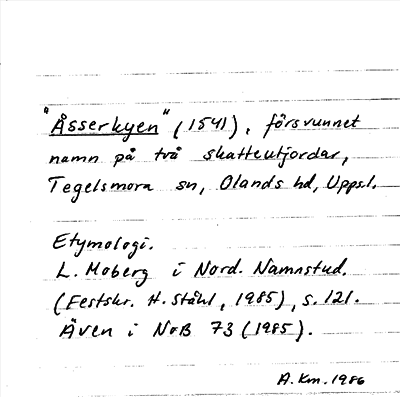 "Åsserkyen" (1541), försvunnet
namn på två skatteutjordar,
Tegelsmora sn, Olands hd, Uppsl.
Etymologi.
L. Moberg i Nord. Namnstud.
(Festskr. H. Ståhl, 1985), s. 121.
Även i NoB 73 (1985).
A. Km. 1986